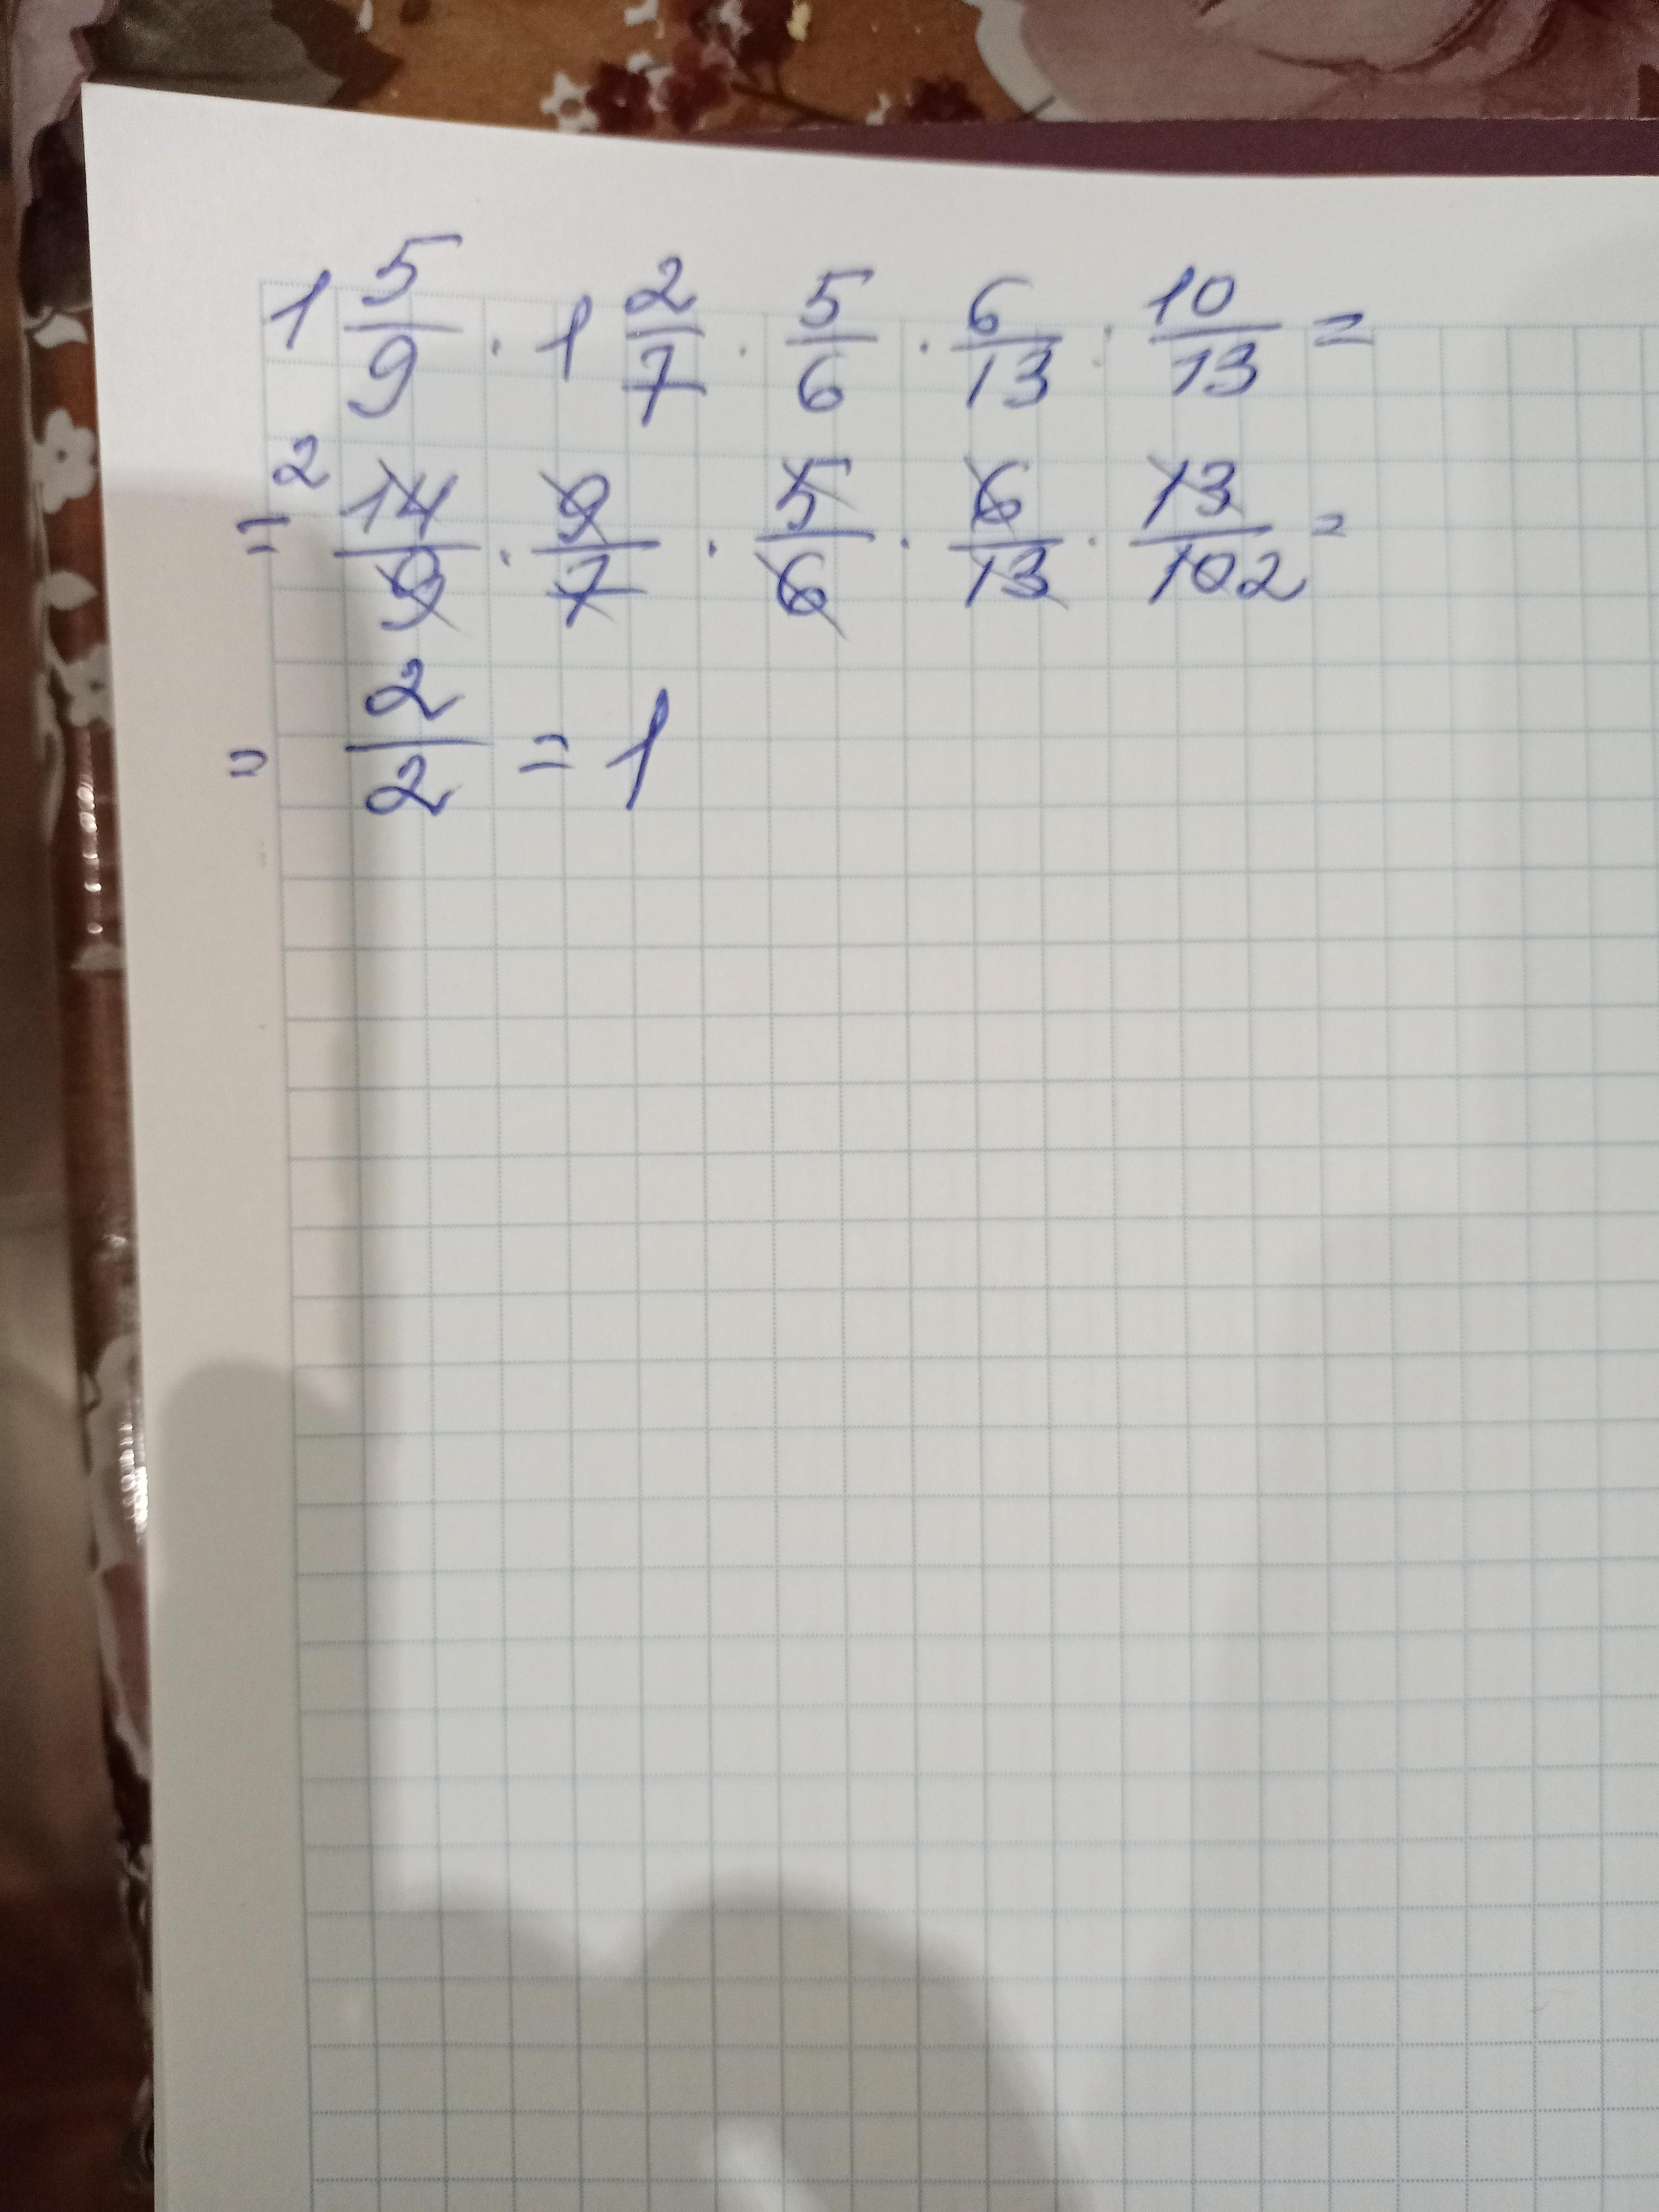 1 5/9 · 1 2/7 · 5/6 · 6/13 : 10/13 =
= 2 14/9 · 9/7 · 5/6 · 6/13 · 13/10 2 =
= 2/2 = 1